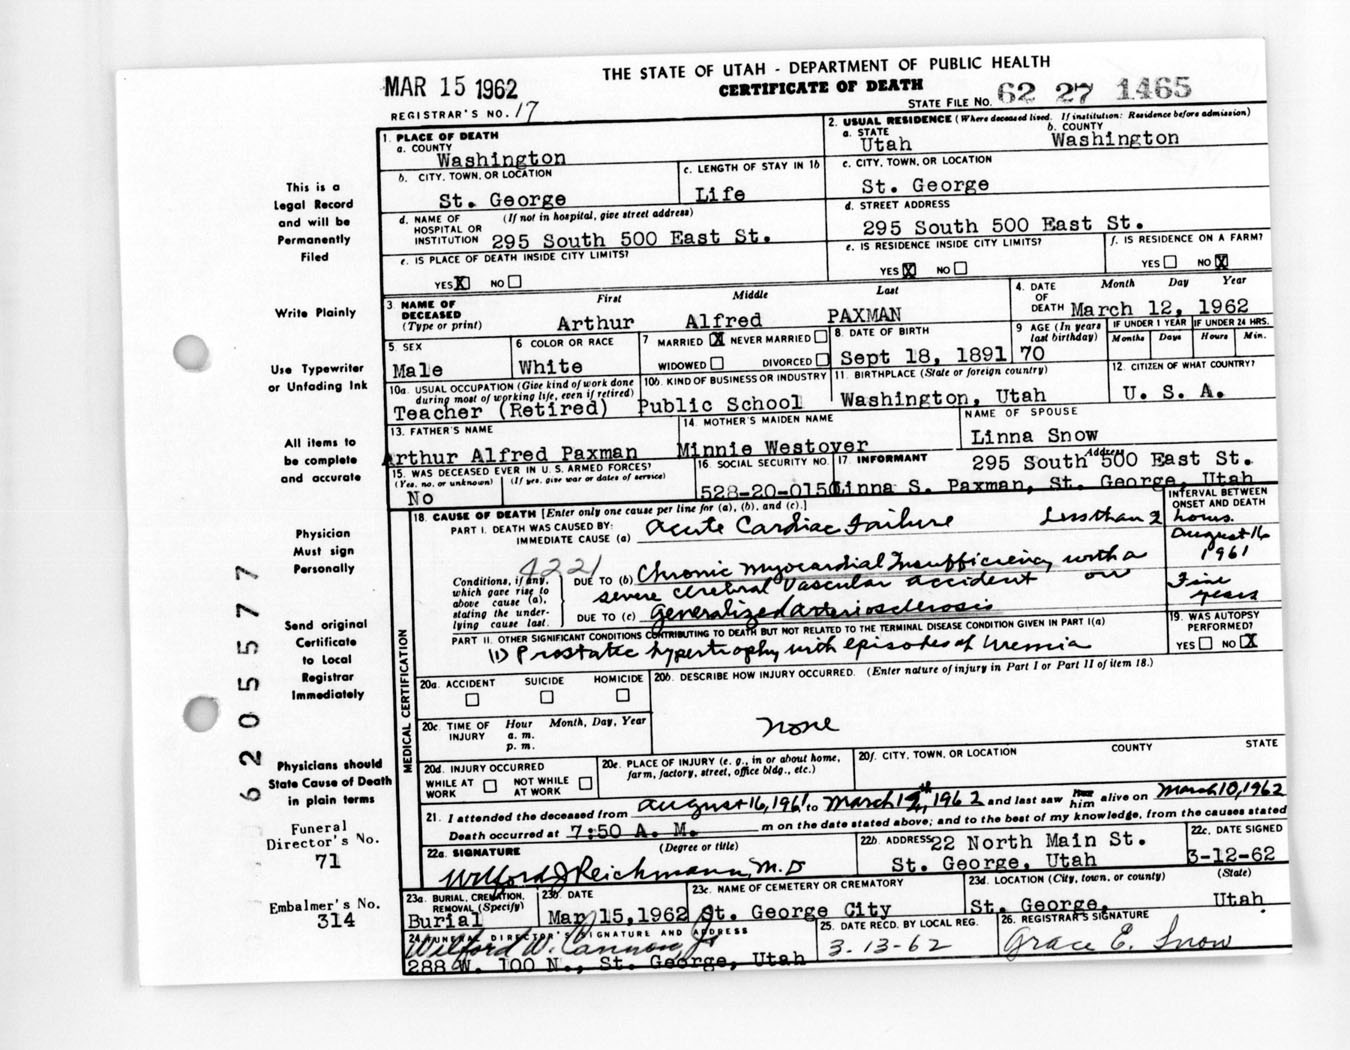 MAR 15 1962
THE STATE OF UTAH - DEPARTMENT OF PUBLIC HEALTH
CERTIFICATE OF DEATH
STATE FILE NO. 62 27 1465
REGISTRAR'S NO. 17
1. PLACE OF DEATH
a. COUNTY
Washington
2. USUAL RESIDENCE (Where deceased lived. If institution: Residence before admission)
a. STATE b. COUNTY
Utah Washington
b. CITY, TOWN, OR LOCATION
St. George
c. LENGTH OF STAY IN 1b
Life
c. CITY, TOWN, OR LOCATION
St. George
d. NAME OF (If not in hospital, give street address)
HOSPITAL OR
INSTITUTION 295 South 500 East St.
d. STREET ADDRESS
295 South 500 East St.
e. IS PLACE OF DEATH INSIDE CITY LIMITS?
YES X NO
e. IS RESIDENCE INSIDE CITY LIMITS?
YES X NO
f. IS RESIDENCE ON A FARM?
YES NO X
3 NAME OF
DECEASED
(Type or print)
First Middle Last
Arthur Alfred PAXMAN
4. DATE
OF
DEATH
Month Day Year
March 12, 1962
5. SEX
Male
6 COLOR OR RACE
White
7 MARRIED X NEVER MARRIED
WIDOWED DIVORCED
8. DATE OF BIRTH
Sept 18, 1891
9 AGE (In years
last birthday)
70
IF UNDER 1 YEAR IF UNDER 24 HRS.
Months Days Hours Min.
10a. USUAL OCCUPATION (Give kind of work done
during most of working life, even if retired)
Teacher (Retired)
10b. KIND OF BUSINESS OR INDUSTRY
Public School
11. BIRTHPLACE (State or foreign country)
Washington, Utah
12. CITIZEN OF WHAT COUNTRY?
U. S. A.
13. FATHER'S NAME
Arthur Alfred Paxman
14. MOTHER'S MAIDEN NAME
Minnie Westover
NAME OF SPOUSE
Linna Snow
15. WAS DECEASED EVER IN U. S. ARMED FORCES?
(Yes, no, or unknown) (If yes, give war or dates of service)
No
16. SOCIAL SECURITY NO.
528-20-0150
17. INFORMANT Address
295 South 500 East St.
Linna S. Paxman, St. George, Utah
18. CAUSE OF DEATH [Enter only one cause per line for (a), (b), and (c).]
INTERVAL BETWEEN
ONSET AND DEATH
PART I. DEATH WAS CAUSED BY:
IMMEDIATE CAUSE (a) Acute Cardiac Failure Less than 2
hours.
4221
Conditions, if any,
which gave rise to
above cause (a),
stating the under-
lying cause last.
DUE TO (b) Chronic myocardial Insufficiency with a
severe cerebral vascular accident on
August 16
1961
DUE TO (c) generalized arteriosclerosis
Five
years
PART II. OTHER SIGNIFICANT CONDITIONS CONTRIBUTING TO DEATH BUT NOT RELATED TO THE TERMINAL DISEASE CONDITION GIVEN IN PART I(a)
(1) Prostatic hypertrophy with episodes of Uremia
19. WAS AUTOPSY
PERFORMED?
YES NO X
MEDICAL CERTIFICATION
20a. ACCIDENT SUICIDE HOMICIDE
20b. DESCRIBE HOW INJURY OCCURRED. (Enter nature of injury in Part I or Part II of item 18.)
none
20c. TIME OF
INJURY
Hour Month, Day, Year
a. m.
p. m.
20d. INJURY OCCURRED
WHILE AT
WORK
NOT WHILE
AT WORK
20e. PLACE OF INJURY (e. g., in or about home,
farm, factory, street, office bldg., etc.)
20f. CITY, TOWN, OR LOCATION COUNTY STATE
21. I attended the deceased from August 16, 1961 to March 12th, 1962 and last saw him alive on March 10, 1962
Death occurred at 7:50 A. M. m on the date stated above; and to the best of my knowledge, from the causes stated
22a. SIGNATURE (Degree or title)
Wilford J Reichmann, M.D
22b. ADDRESS 22 North Main St.
St. George, Utah
22c. DATE SIGNED
3-12-62
23a. BURIAL, CREMATION,
REMOVAL (Specify)
Burial
23b. DATE
Mar 15, 1962
23c. NAME OF CEMETERY OR CREMATORY
St. George City
23d. LOCATION (City, town, or county) (State)
St. George, Utah
24. FUNERAL DIRECTOR'S SIGNATURE AND ADDRESS
Wilford W. Cannon Jr
288 W. 100 N., St. George, Utah
25. DATE RECD. BY LOCAL REG.
3-13-62
26. REGISTRAR'S SIGNATURE
Grace E. Snow
This is a
Legal Record
and will be
Permanently
Filed
Write Plainly
Use Typewriter
or Unfading Ink
All items to
be complete
and accurate
Physician
Must sign
Personally
Send original
Certificate
to Local
Registrar
Immediately
Physicians should
State Cause of Death
in plain terms
Funeral
Director's No.
71
Embalmer's No.
314
6205577